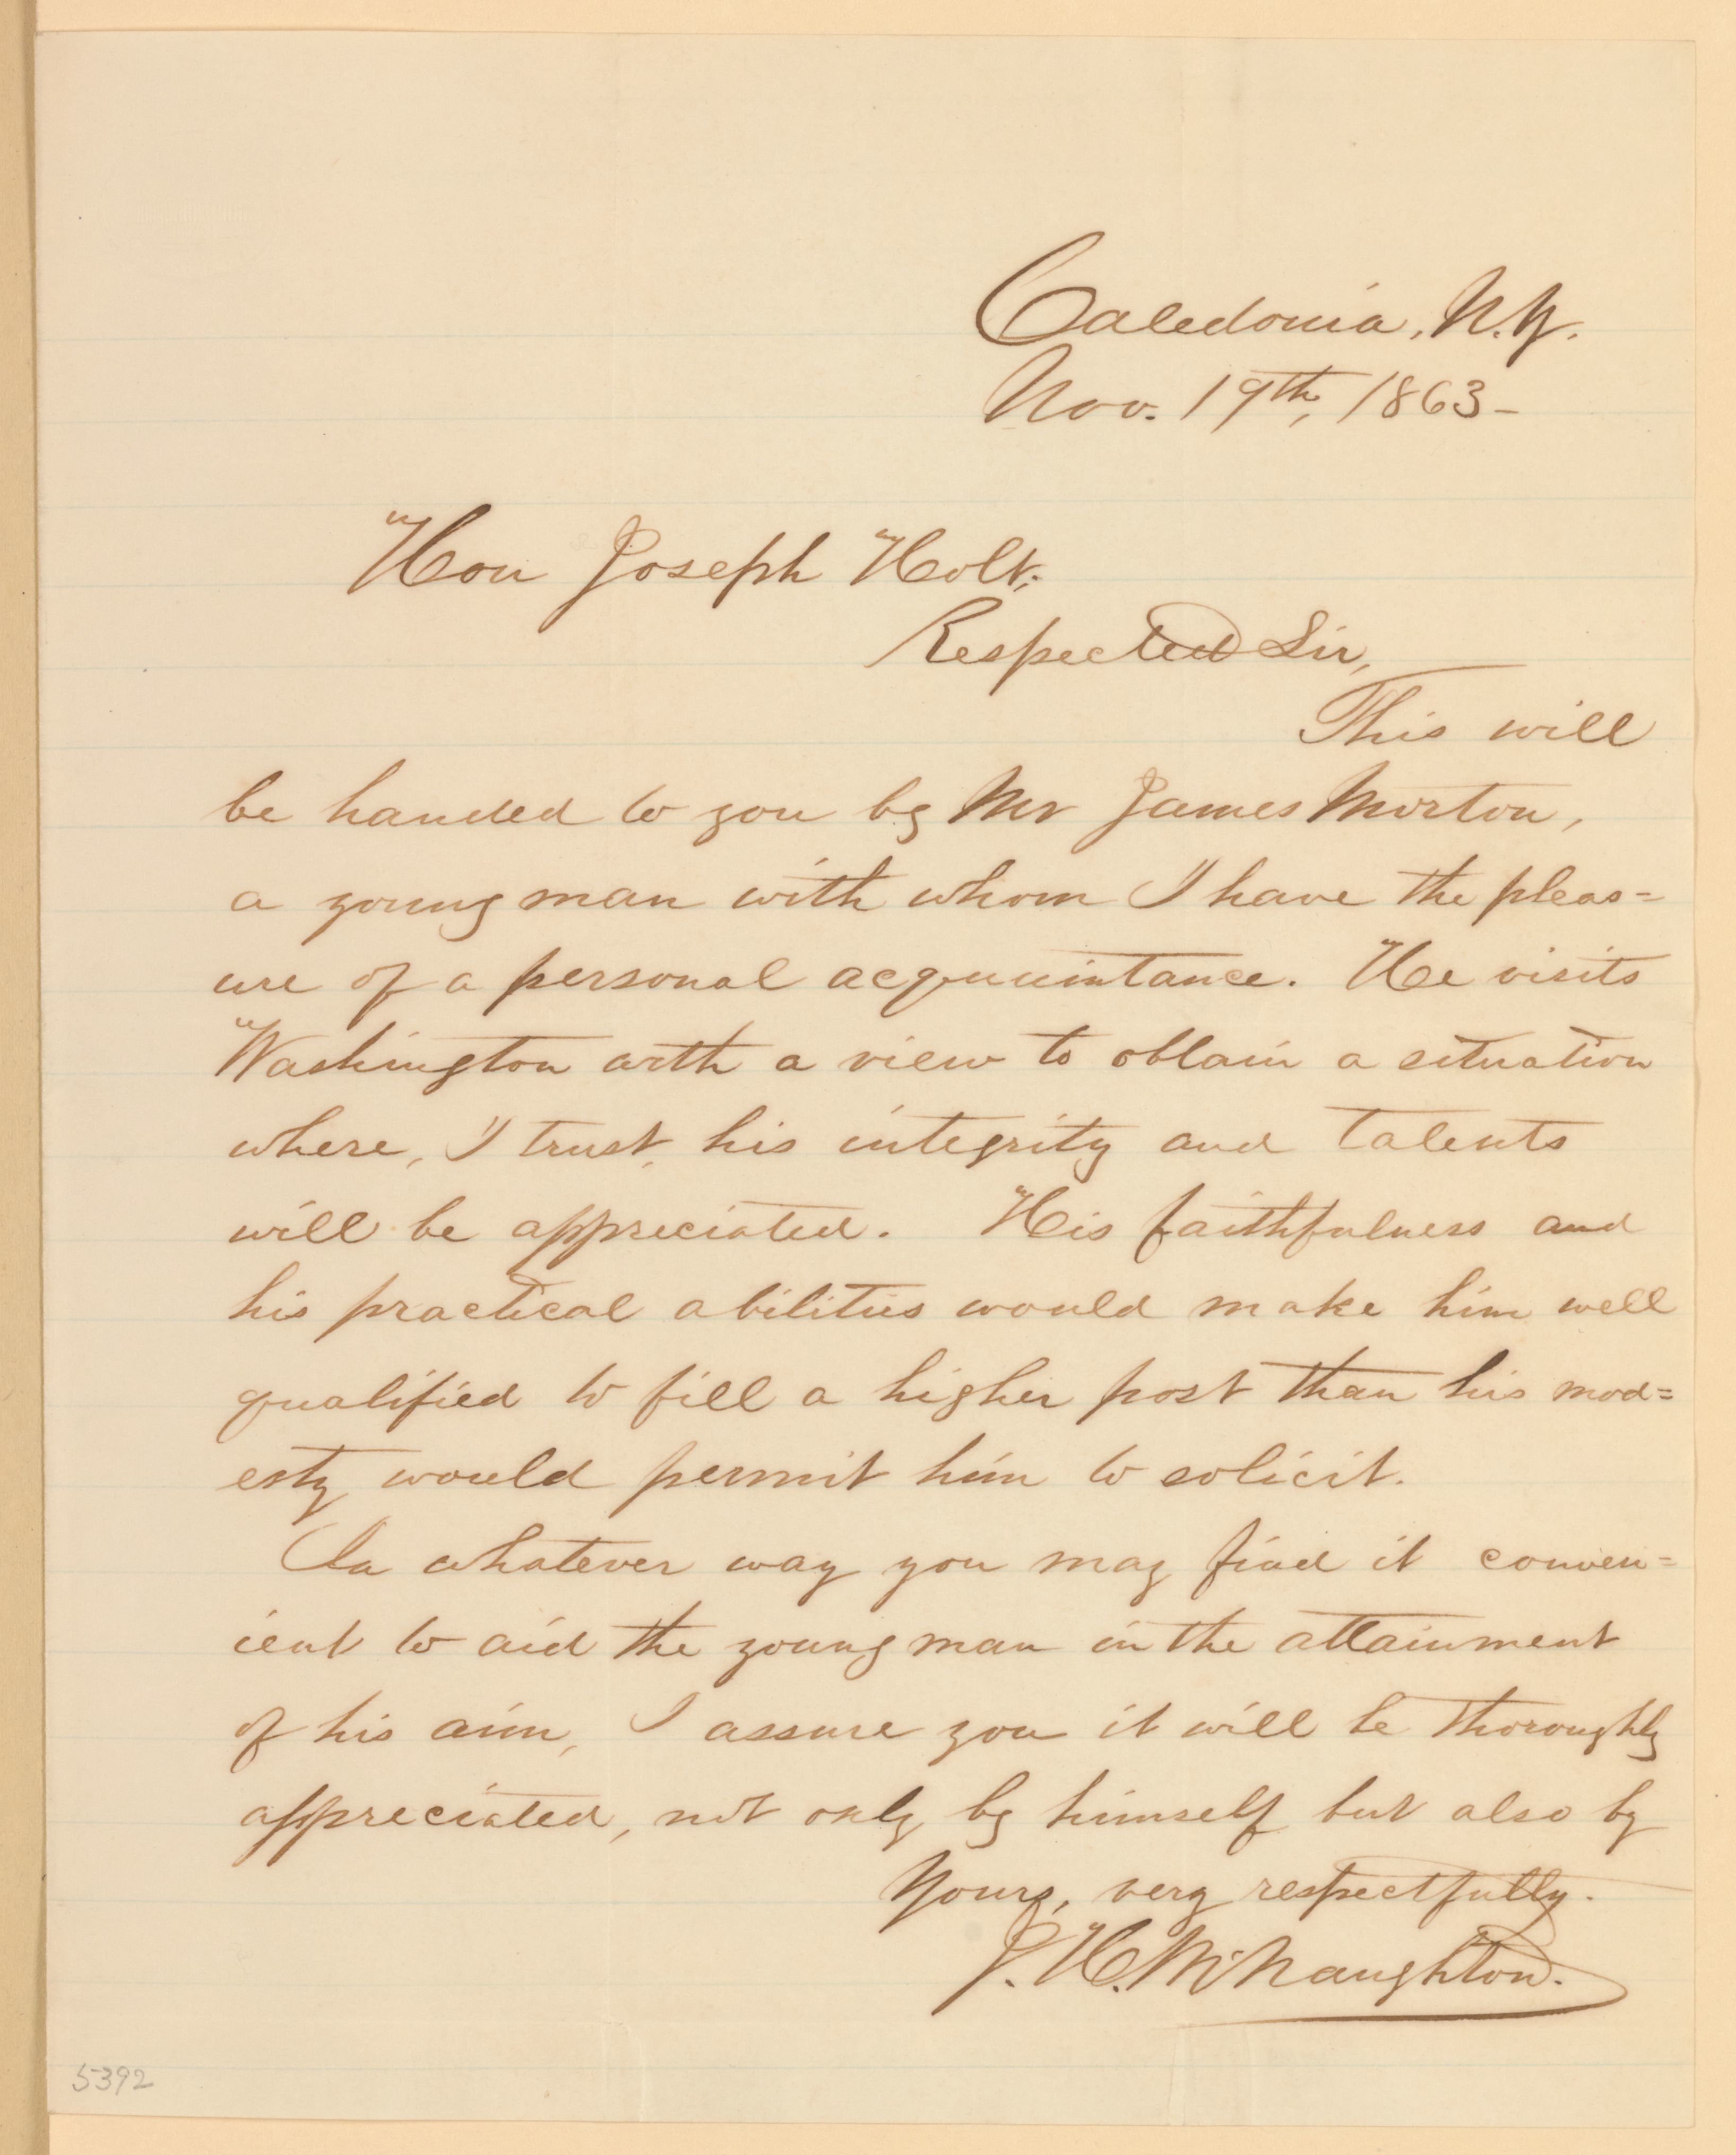 Caledonia, N.Y.
Nov. 19th, 1863-
Hon Joseph Holt;
Respected Sir,
This will
be handed to you by Mr James Morton,
a young man with whom I have the pleas=
ure of a personal acquaintance. He visits
Washington with a view to obtain a situation
where, I trust, his integrity and talents
will be appreciated. His faithfulness and
his practical abilities would make him well
qualified to fill a higher post than his mod=
esty would permit him to solicit.
In whatever way you may find it conven=
ient to aid the young man in the attainment
of his aim, I assure you it will be thoroughly
appreciated, not only by himself but also by
Yours, very respectfully.
J. H. McNaughton.
5392